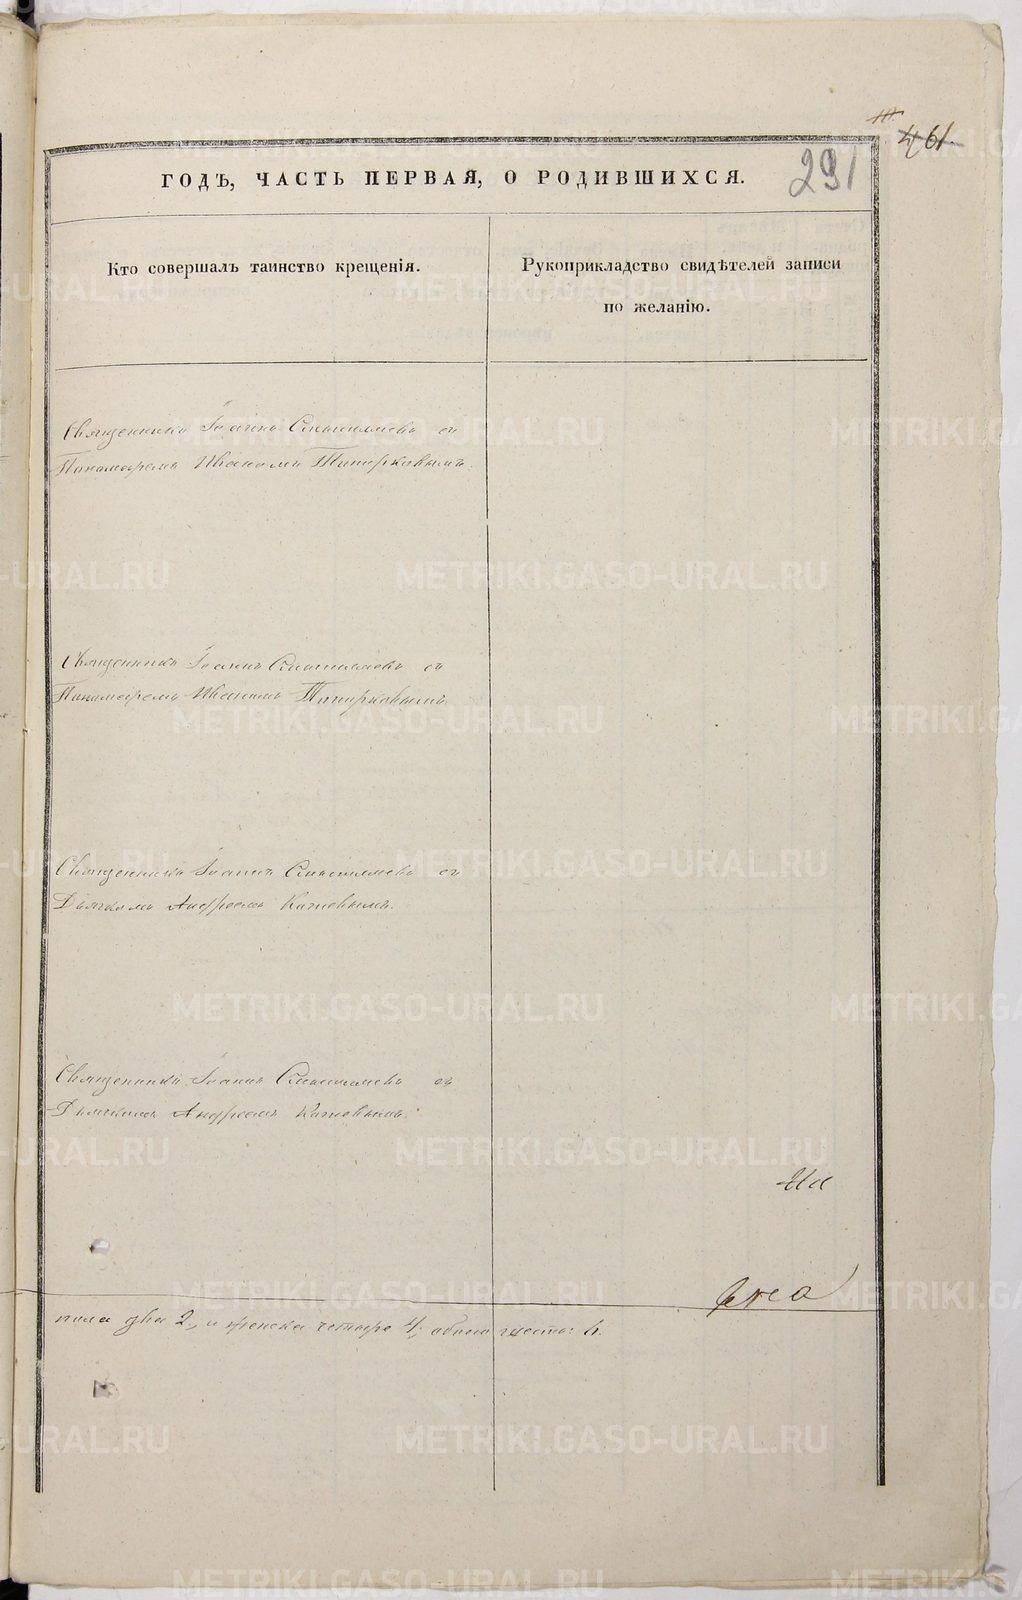 461.
291
ГОДЪ, ЧАСТЬ ПЕРВАЯ, О РОДИВШИХСЯ.
Кто совершалъ таинство крещенія.
Рукоприкладство свидѣтелей записи
по желанію.
Священникъ Іоаннъ съ
Пономаремъ Иваномъ Топорковымъ.
Священникъ Іоаннъ съ
Пономаремъ Иваномъ Топорковымъ
Священникъ Іоаннъ съ
Дьячкомъ Андреемъ
Священникъ Іоаннъ съ
Дьячкомъ Андреемъ
пола два 2, и женска четыре 4, обоего шесть: 6.
METRIKI.GASO-URAL.RU